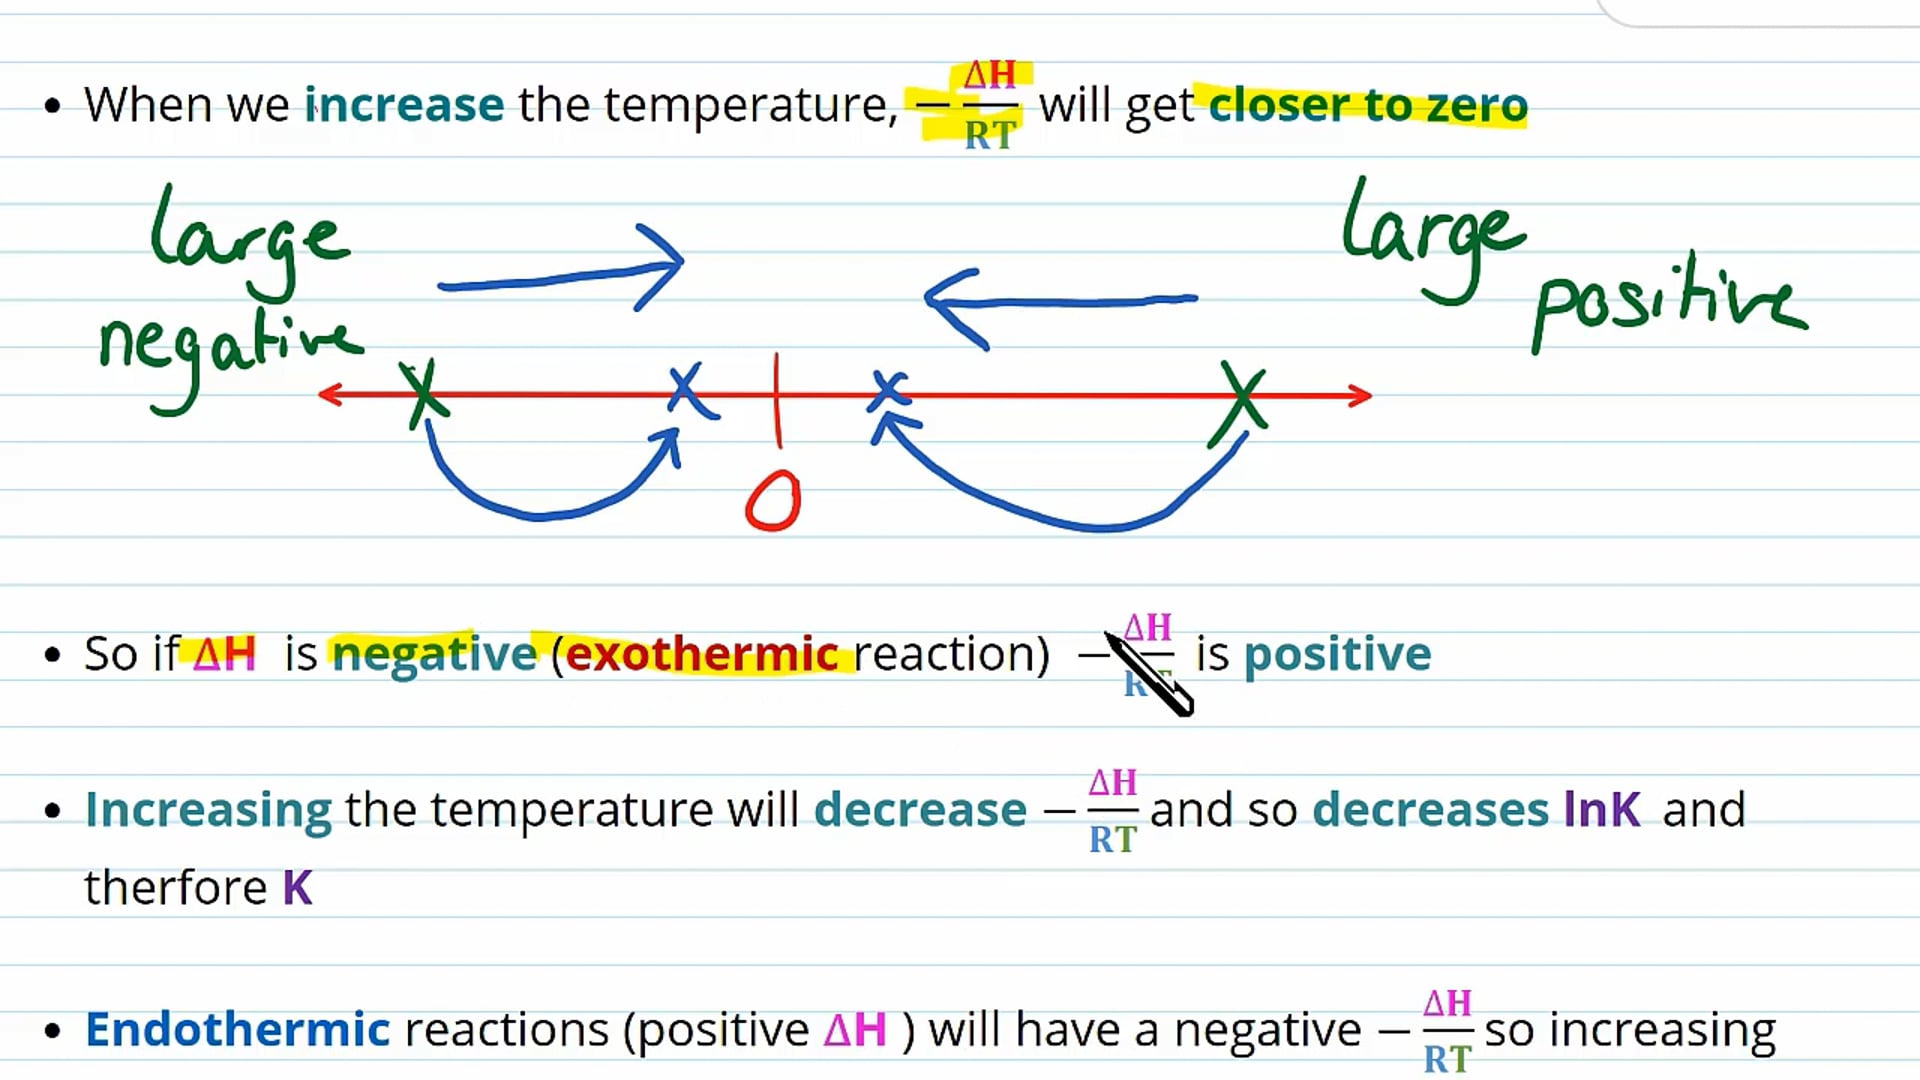 • When we increase the temperature, −ΔH/RT will get closer to zero
large negative
large positive
0
• So if ΔH is negative (exothermic reaction) −ΔH/RT is positive
• Increasing the temperature will decrease −ΔH/RT and so decreases lnK and
therfore K
• Endothermic reactions (positive ΔH ) will have a negative −ΔH/RT so increasing